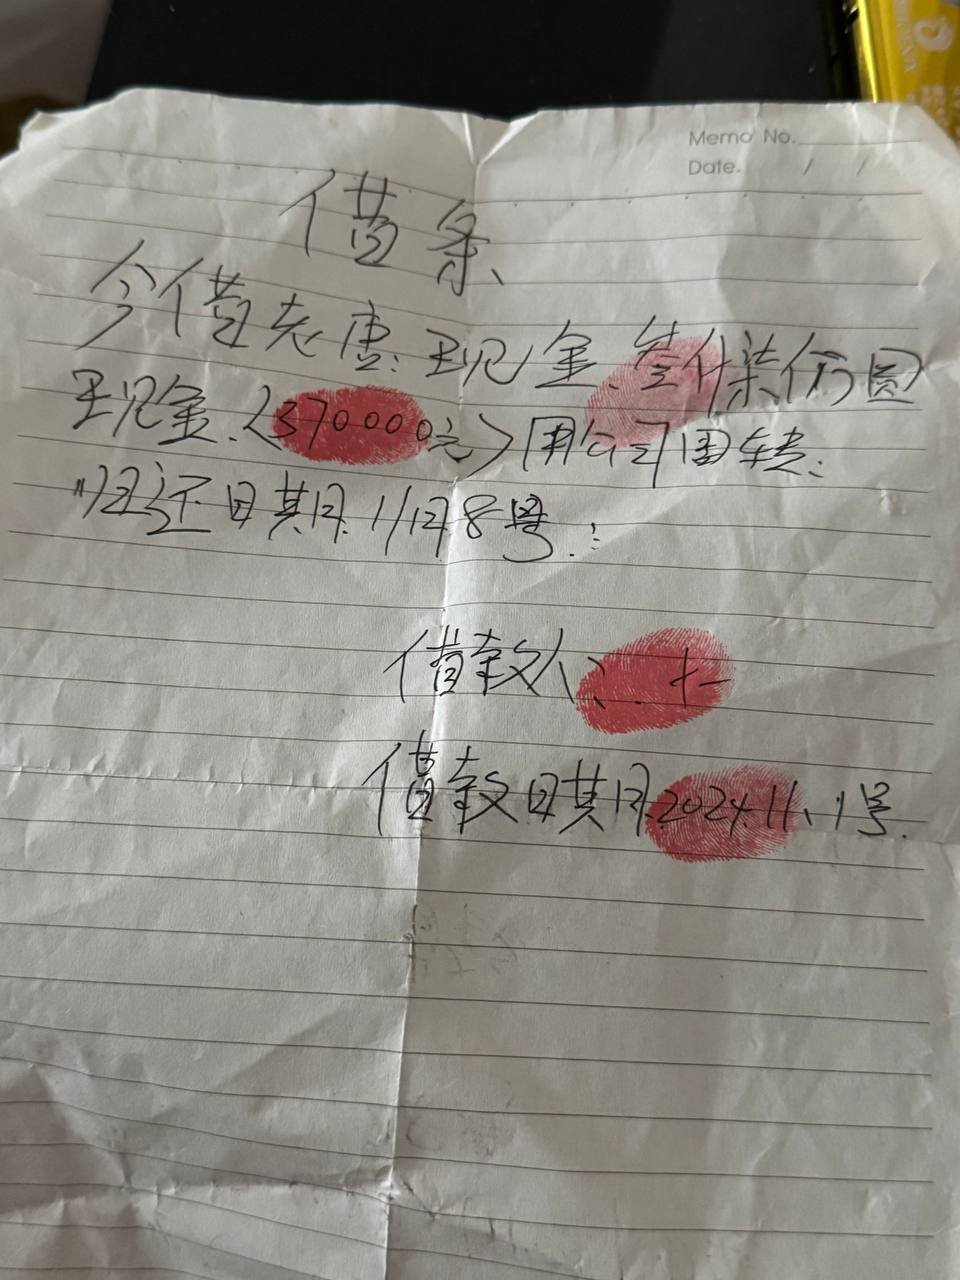 Memo No.
Date. / /
借条
今借老唐:现金.叁什柒仟万圆
现金.<370000元>用公司周转.
归还日期.11月8号.:
借款人:
借款日期.2024.11.1号.